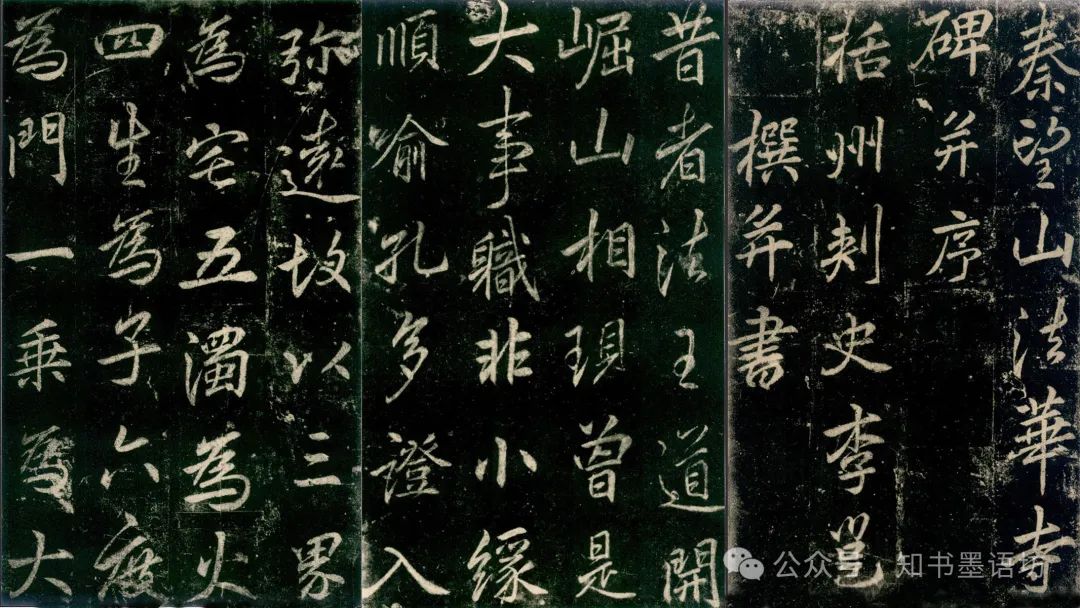 秦望山法華寺
碑并序
括州刺史李邕
撰并書
昔者法王道開
崛山相現曾是
大事職非小緣
順喻孔多證入
弥遠故以三界
為宅五濁為火
四生為子六度
為門一乗為大
公众号·知书墨语坊